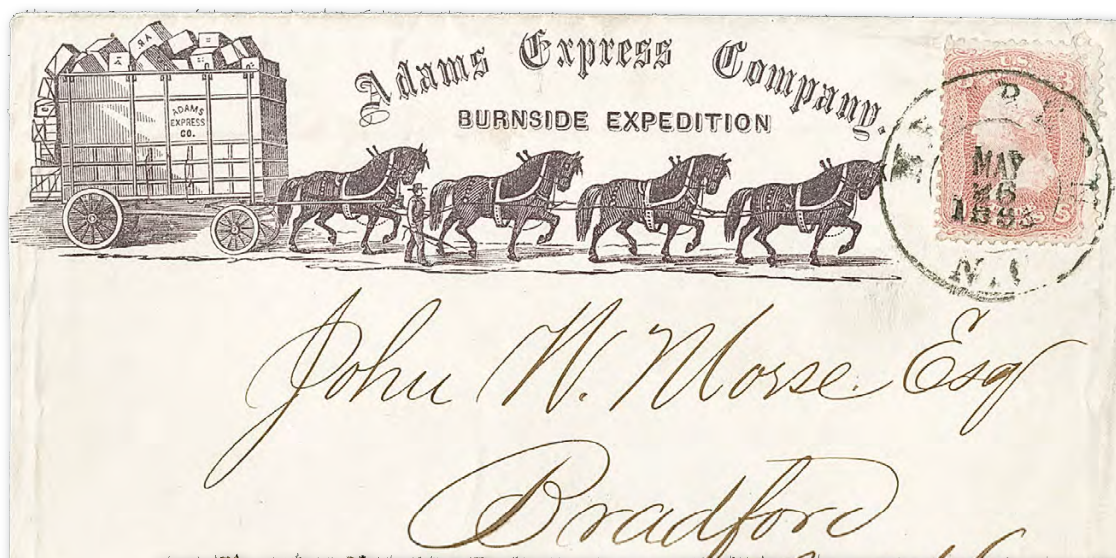 Adams Express Company.
BURNSIDE EXPEDITION
ADAMS
EXPRESS
CO.
U.S.
3
MAY
N.C
John W. Morse. Esq
Bradford